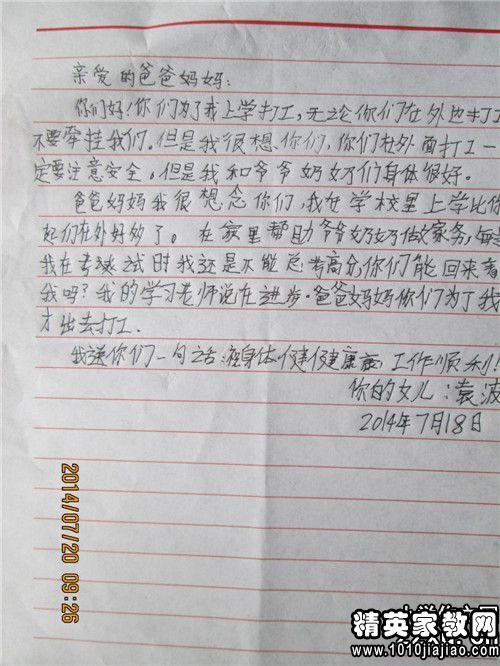 亲爱的爸爸妈妈:
你们好!你们为了我上学打工,无论你们在外也打工
不要牵挂我们。但是我很想你们,你们在外面打工一
定要注意安全。但是我和爷爷奶奶们身体很好。
爸爸妈妈我很想念你们,我在学校里上学比你
起们在外好多了。在家里帮助爷爷奶奶做家务,每
我在考试时我还是不能总考高分,你们能回来看
我吗?我的学习老师说在进步。爸爸妈妈你们为了我
才出去打工.
我送你们一句话:身体健健康康,工作顺利!
你的女儿:袁波
2014年7月18日
2014/07/20 09:26
精英家教网
www.1010jiajiao.com